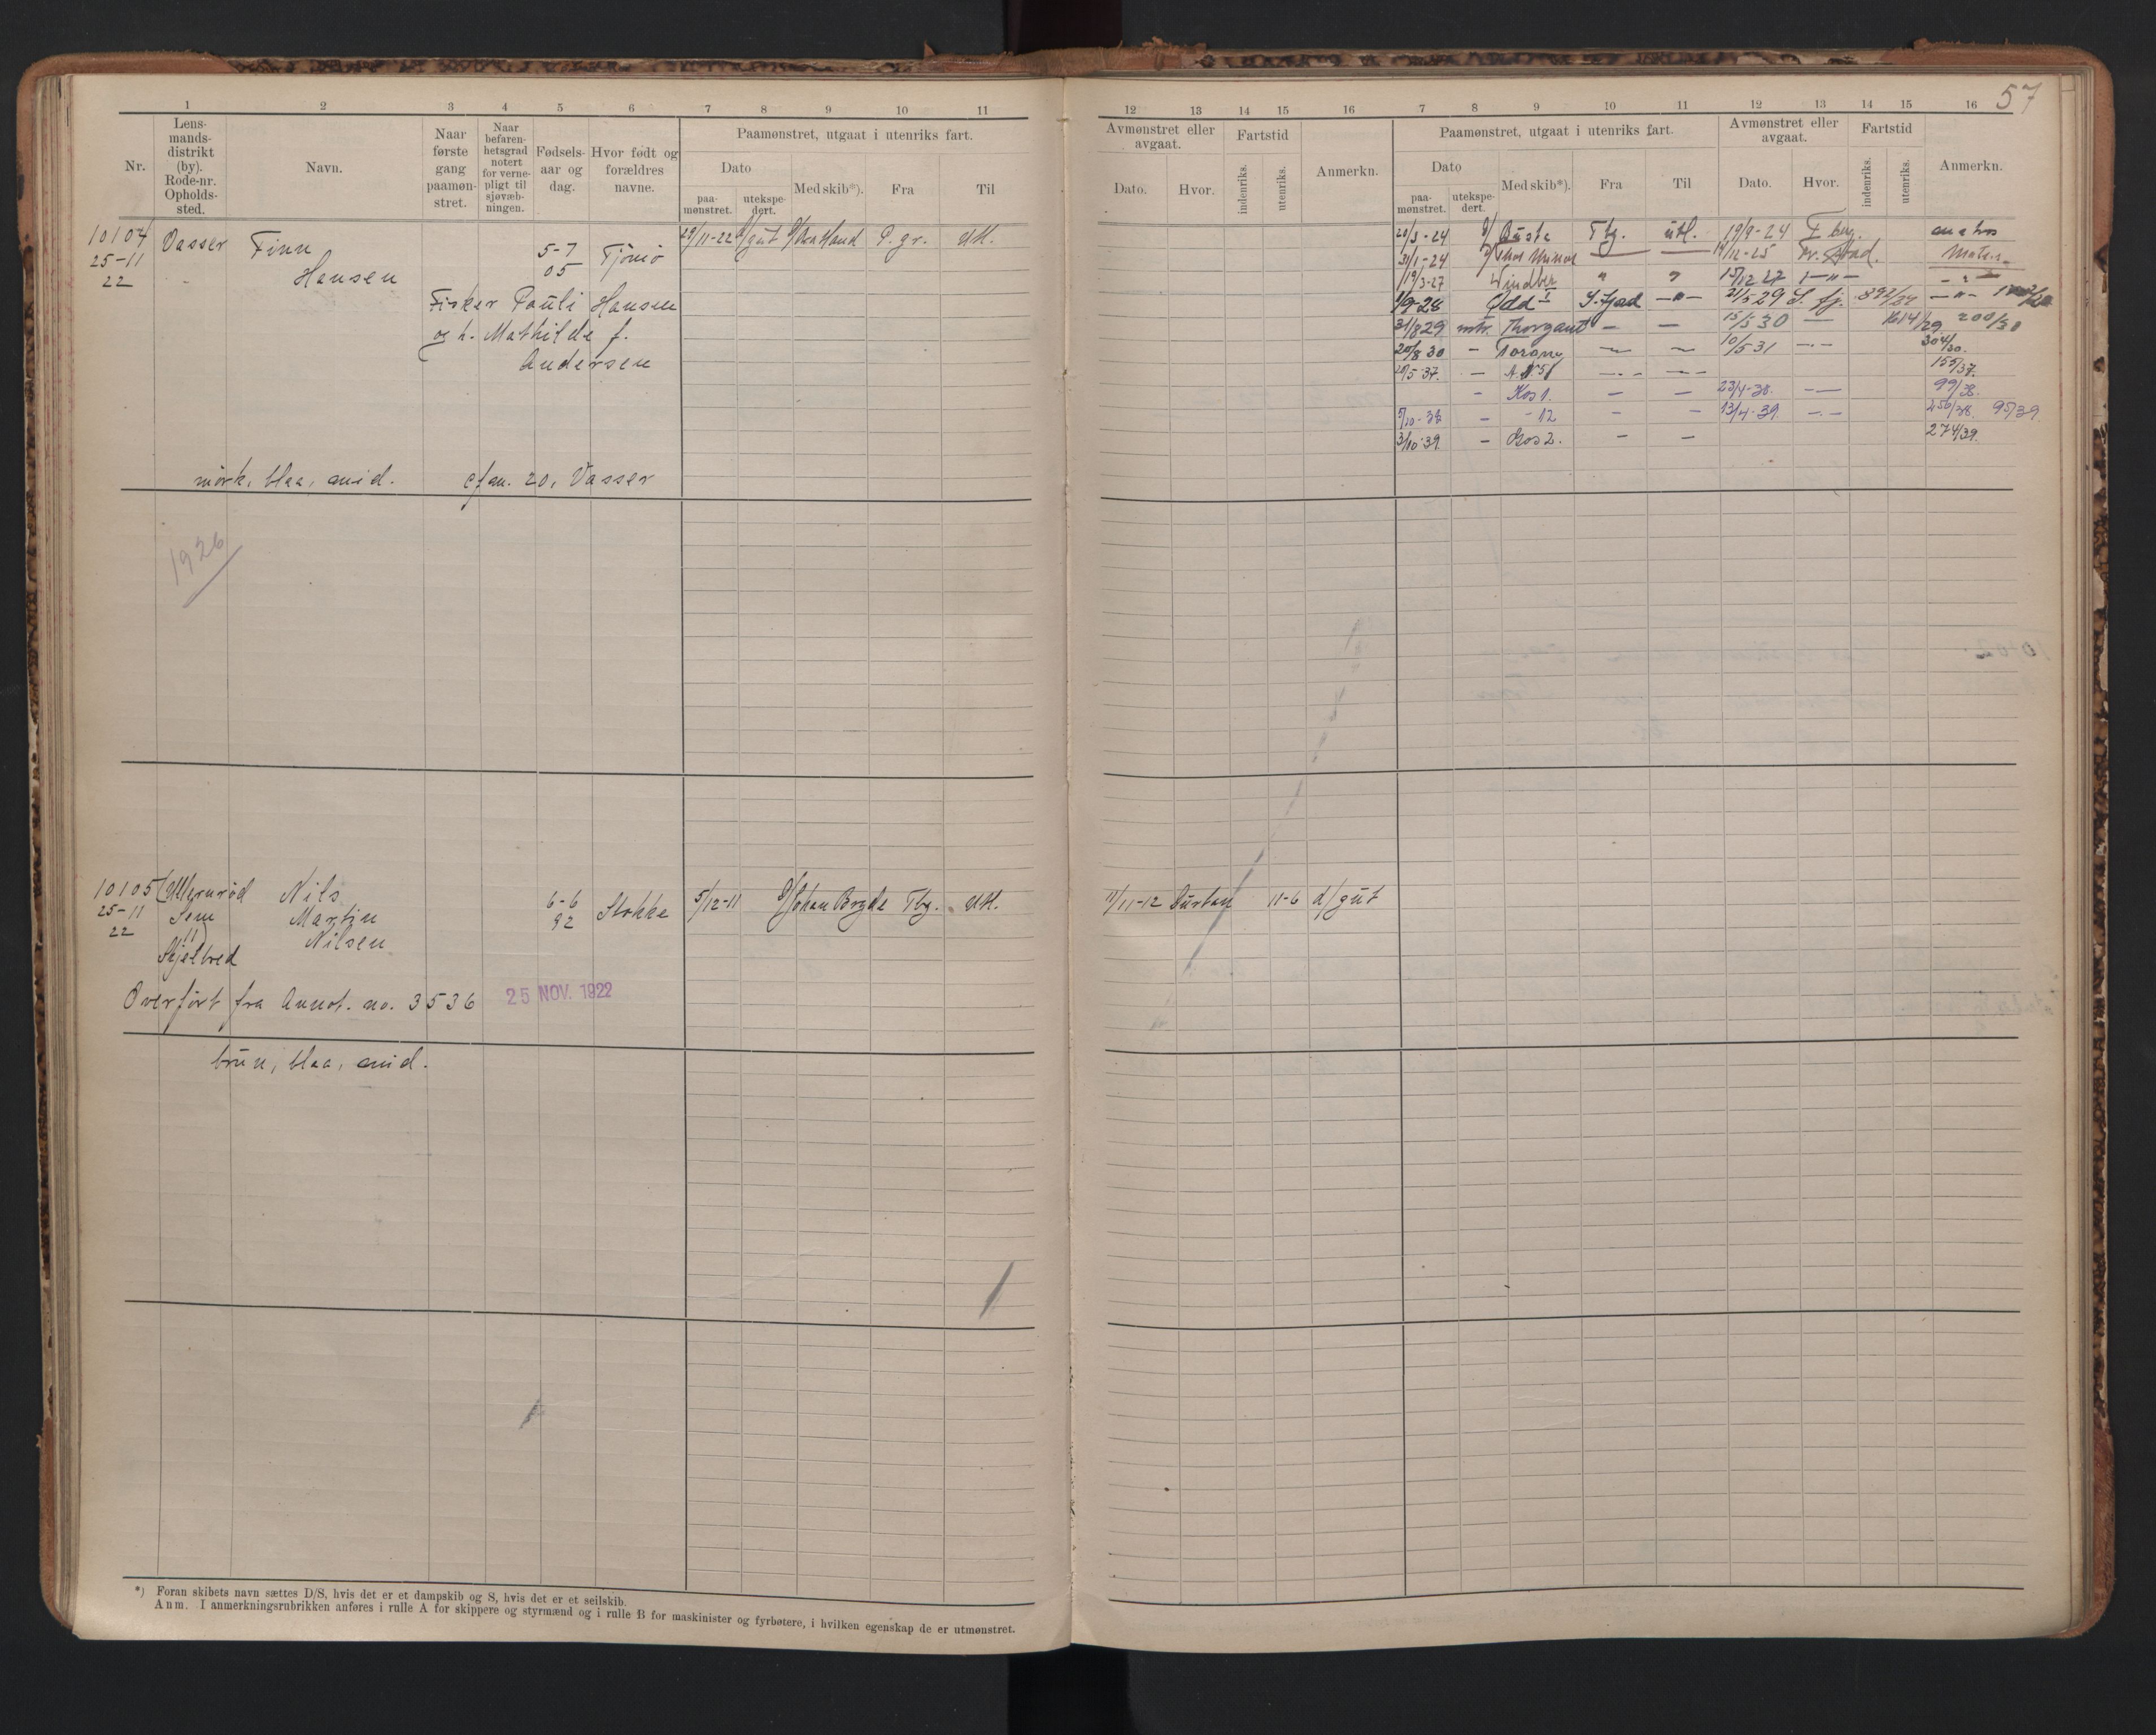 57
1 2 3 4 5 6 7 8 9 10 11
Nr.
Lens-
mands-
distrikt
(by).
Rode-nr.
Opholds-
sted.
Navn.
Naar
første
gang
paamøn-
stret.
Naar
befaren-
hetsgrad
notert
for verne-
pligt til
sjøvæb-
ningen.
Fødsels-
aar og
dag.
Hvor født og
forældres
navne.
Paamønstret, utgaat i utenriks fart.
Dato
paa-
mønstret.
utekspe-
dert.
Med skib*).
Fra
Til
10104 Vasser Finn 5-7 Tjømø 29/11-22 gut P. gr. Utl.
25-11 Hansen 05
22
Fisker Pauli Hansen
og h. Mathilde f.
Andersen
mörk, blaa, mid. cfan. 20, Vasser
1926
10105 Nils 6-6 Stokke 5/12-11 Johan Bryde Tbg. Utl.
25-11 Sem Martin 92
22 Nilsen
Overført fra Annot. no. 3536 25 NOV. 1922
brun, blaa, mid.
*) Foran skibets navn sættes D/S, hvis det er et dampskib og S, hvis det er et seilskib.
Anm. I anmerkningsrubrikken anføres i rulle A for skippere og styrmænd og i rulle B for maskinister og fyrbøtere, i hvilken egenskap de er utmønstret.
12 13 14 15 16 7 8 9 10 11 12 13 14 15 16
Avmønstret eller
avgaat.
Dato.
Hvor.
Fartstid
indenriks.
utenriks.
Anmerkn.
Paamønstret, utgaat i utenriks fart.
Dato
paa-
mønstret.
utekspe-
dert.
Med skib*).
Fra
Til
Avmønstret eller
avgaat.
Dato.
Hvor.
Fartstid
indenriks.
utenriks.
Anmerkn.
20/3-24 Busta Tbg. utl. 19/9-24 T bug. matros
31/1-24 Thor — — 14/12-25 Fr. stad.
19/3-27 Windber " " 15/12 27 — " —
1/9-28 Odd I S. fjord — " — 21/5 29 S. fj. 892/24 — " —
31/8 29 mtr. Thorgaut — — 15/5 30 — 1614/29 200/30
20/8 30 — — — 10/5-31 — . — 304/30.
20/5-37. — — . — — . — 155/37.
— Kos 1. — — 23/4-38. — — 99/38.
5/10-38 — -12 — — 13/4-39 — . — 256/38. 95/39
3/10-39. — Kos 2. — — 274/39.
11/11-12 Durban 11-6 d/gut